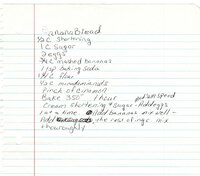 Banana Bread
1/2 C. Shortening
1 C Sugar
2 eggs
3/4 C mashed Bananas
1 tsp baking soda
1 1/4 C flour
1/2 C nuts
Pinch of Cinnamon
Bake 350° 1 hour
Cream Shortening + Sugar - Add eggs
1 at a time Add Bananas mix well -
Add the rest of ingr. mix
thouroughly